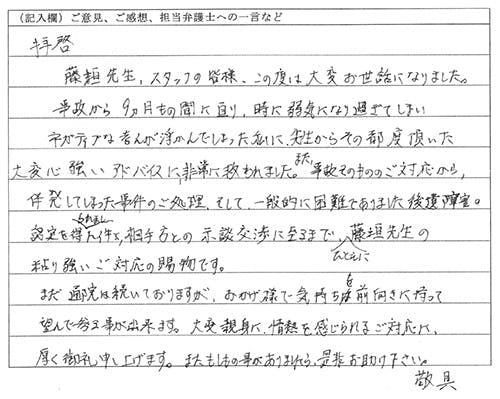 （記入欄）ご意見、ご感想、担当弁護士への一言など
拝啓
藤垣先生、スタッフの皆様、この度は大変お世話になりました。
事故から9ヵ月もの間に亘り、時に弱気になり過ぎてしまい
ネガティブな考えが浮かんでしまった私に、先生からその都度頂いた
大変心強いアドバイスに、非常に救われました。また、事故そのもののご対応から、
併発してしまった事件のご処理、そして、一般的に困難でありました後遺障害の
認定を得られました件と、相手方との示談交渉に至るまで、ひとえに藤垣先生の
粘り強いご対応の賜物です。
まだ通院は続いておりますが、おかげ様で気持ちを前向きに持って
望んで参る事が出来ます。大変親身に、情熱を感じられるご対応に、
厚く御礼申し上げます。またもしもの事がありましたら、是非お助け下さい。
敬具